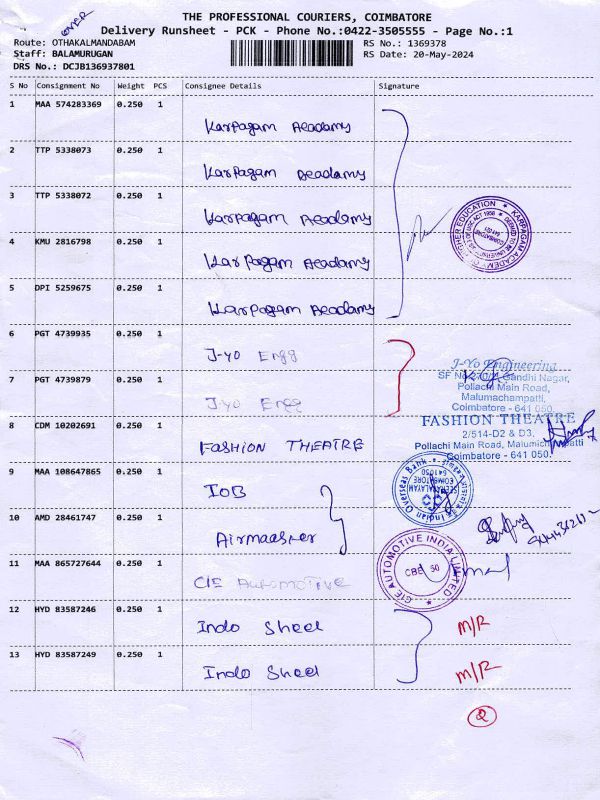 OVER
THE PROFESSIONAL COURIERS, COIMBATORE
Delivery Runsheet - PCK - Phone No.:0422-3505555 - Page No.:1
Route: OTHAKALMANDABAM RS No.: 1369378
Staff: BALAMURUGAN RS Date: 20-May-2024
DRS No.: DCJB136937801
S No Consignment No Weight PCS Consignee Details Signature
1 MAA 574283369 0.250 1 Karpagam Academy
2 TTP 5338073 0.250 1 Karpagam Academy
3 TTP 5338072 0.250 1 Karpagam Academy
4 KMU 2816798 0.250 1 Karpagam Academy
5 DPI 5259675 0.250 1 Karpagam Academy
6 PGT 4739935 0.250 1 J-yo Engg
7 PGT 4739879 0.250 1 J-yo Engg
J-Yo Engineering
Gandhi Nagar,
Pollachi Main Road,
Malumachampatti,
Coimbatore - 641 050.
8 CDM 10202691 0.250 1 FASHION THEATRE
FASHION THEATRE
2/514-D2 & D3,
Pollachi Main Road, Malumichampatti
Coimbatore - 641 050.
9 MAA 108647865 0.250 1 IOB
Indian Overseas Bank
COIMBATORE
641050
10 AMD 28461747 0.250 1 Airmaster
11 MAA 865727644 0.250 1 CIE Automotive
CIE AUTOMOTIVE INDIA LIMITED
CBE 50
12 HYD 83587246 0.250 1 Indo Shell M/R
13 HYD 83587249 0.250 1 Indo Shell M/R
2